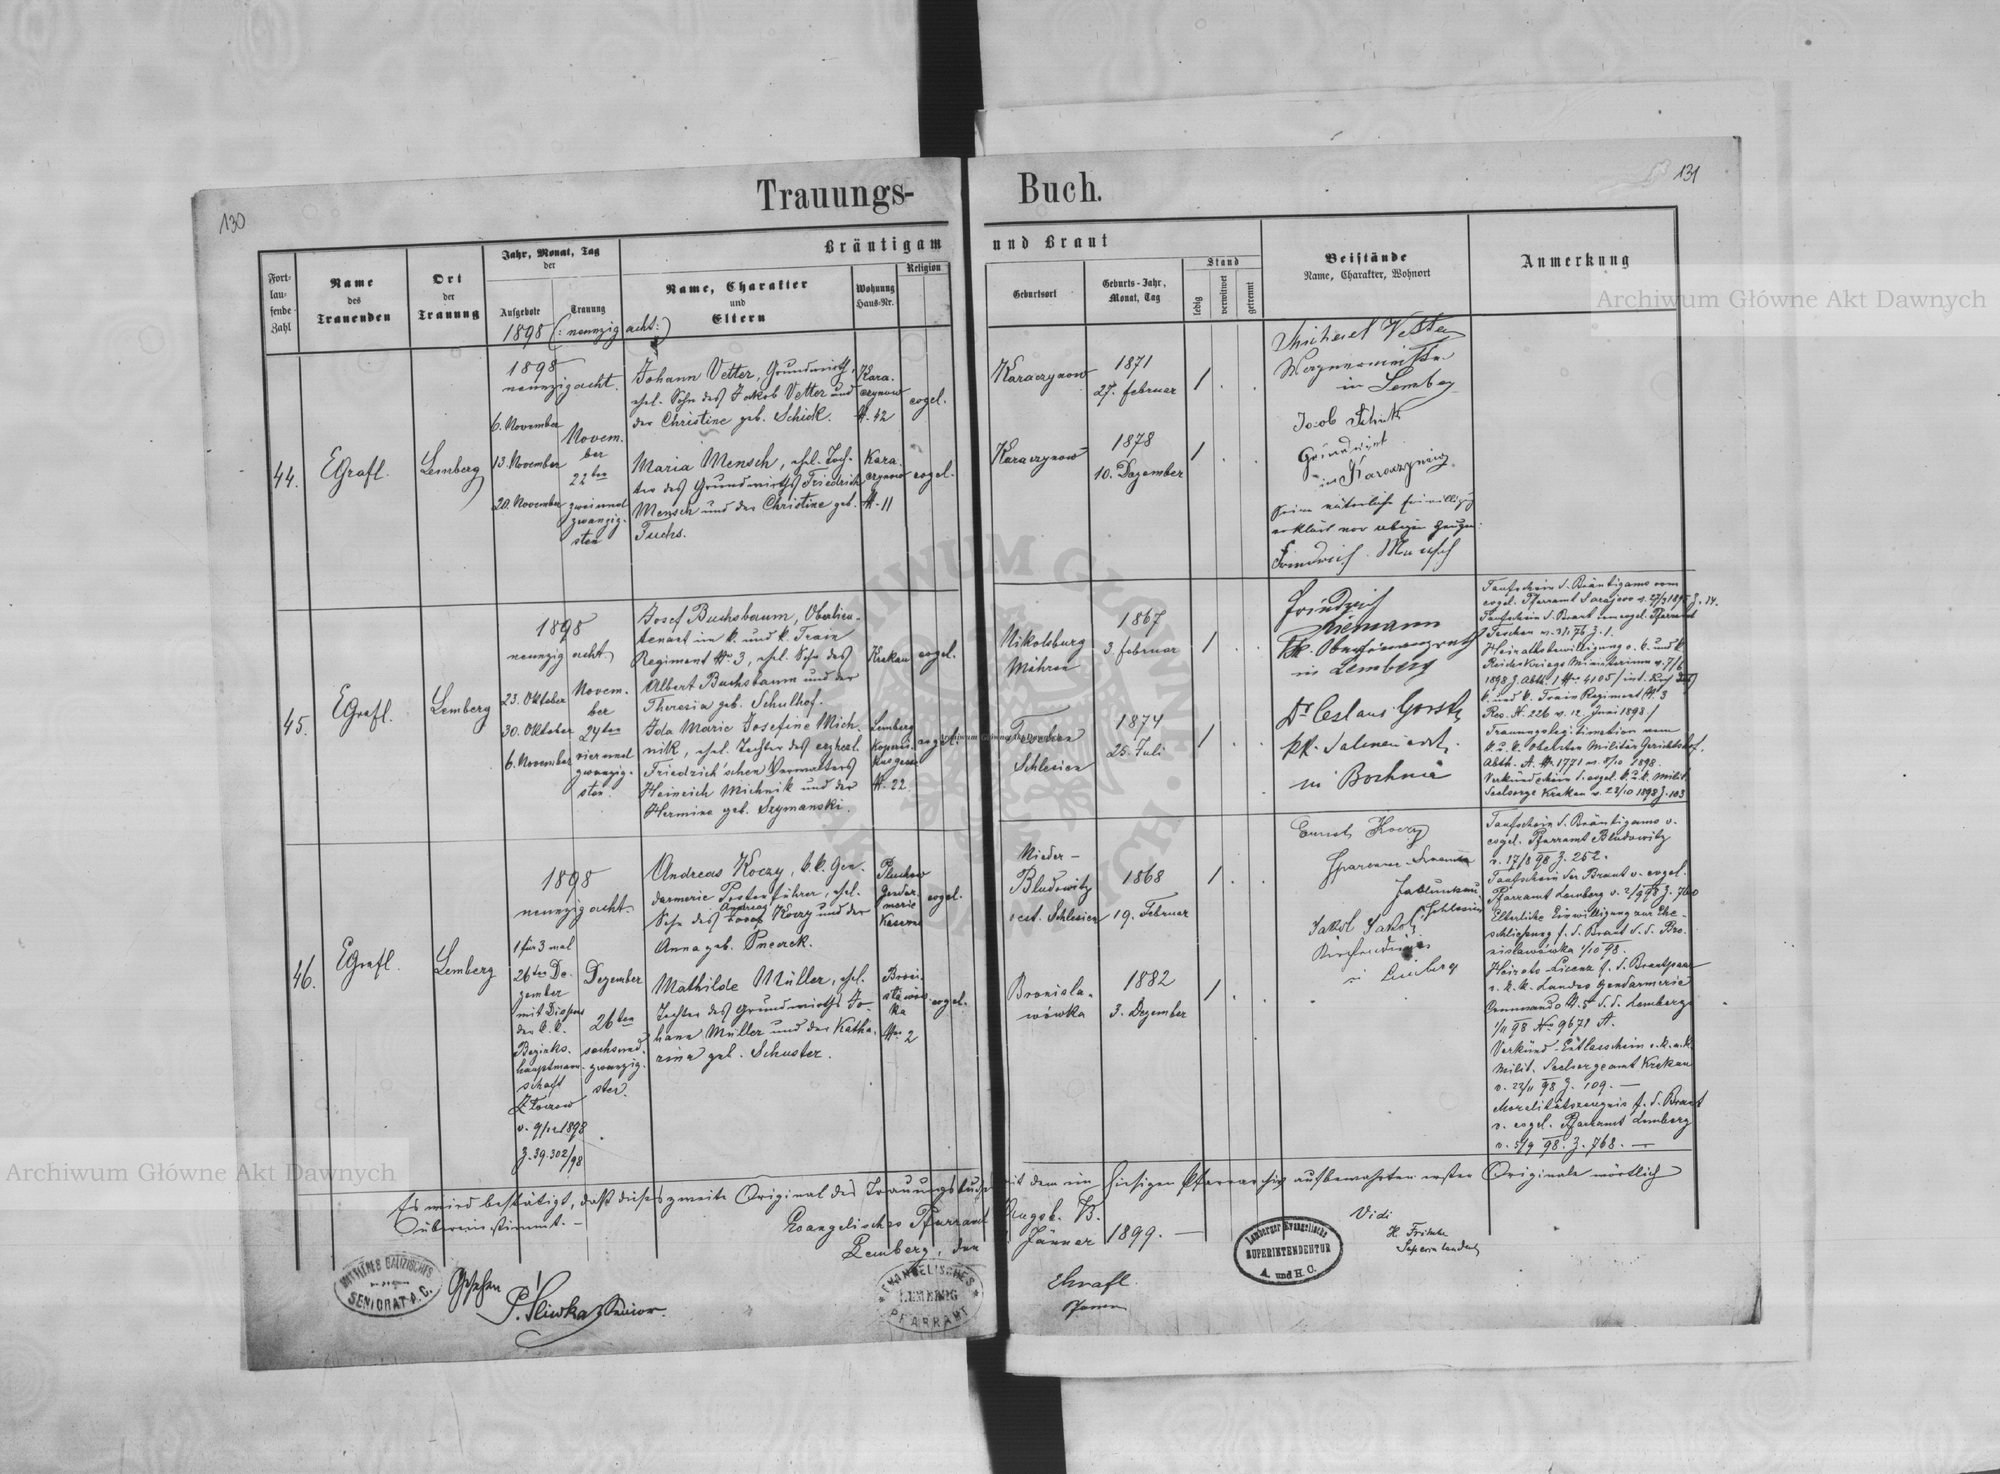 130
Trauungs-
Buch.
131
Fort-
lau-
fende
Zahl
Name
des
Trauenden
Ort
der
Trauung
Jahr, Monat, Tag
der
Aufgebote
Trauung
Bräutigam
und Braut
Name, Charakter
und
Eltern
Wohnung
Haus-Nr.
Religion
Geburtsort
Geburts-Jahr,
Monat, Tag
Stand
ledig
verwitwet
getrennt
Beistände
Name, Charakter, Wohnort
Anmerkung
1898 (: neunzig acht :)
44.
EGrafl.
Lemberg
1898
neunzig acht.
6. November
13. November
20. November
Novem-
ber
22ten
zweiund
zwanzig-
sten
Johann Vetter, Grundwirth,
ehel. Sohn des Jakob Vetter und
der Christine geb. Schick.
Kara-
czynow
№ 42
evgel.
Maria Mensch, ehel. Toch-
ter des Grundwirths Friedrich
Mensch und der Christine geb.
Fuchs.
Kara-
czynow
№ 11
evgel.
Karaczynow
1871
27. Februar
1 . .
Karaczynow
1878
10. Dezember
1 . .
Michael Vetter
in Lemberg
Jacob Schick
Grundwirt
in Karaczynow
Friedrich Mensch
45.
EGrafl.
Lemberg
1898
neunzig acht
23. Oktober
30. Oktober
6. November
Novem-
ber
24ten
vierund
zwanzig-
sten
Josef Buchsbaum, Oberlieu-
tenant im k. und k. Train
Regiment № 3, ehel. Sohn des
Albert Buchsbaum und der
Theresia geb. Schulhof.
Krakau
evgel.
Ida Marie Josefine Mich-
nik, ehel. Tochter des erzherl.
Friedrich'schen Verwalters
Heinrich Michnik und der
Hermine geb. Szymanski.
Lemberg
Koperni-
kusgasse
№ 22.
evgel.
Nikolsburg
Mähren
1867
3. Februar
1 . .
Teschen
Schlesien
1874
25. Juli
1 . .
Friedrich
Riemann
kk. Oberfinanzrath
in Lemberg
in Bochnia
Taufschein d. Bräutigams vom
evgel. Pfarramt Sarajevo
Taufschein d. Braut vom evgel. Pfarramt
Teschen v. 31/5 76 Z. 1.
Heiratsbewilligung v. k. und k.
Reichs Kriegs Ministerium v. 7/6
1898 Z. Abth. 1 № 4105
k. und k. Train Regiment № 3
Res. № 226 v. 12. Juni 1898.
Trauungslegitimation vom
k. u. k. Obersten Militär Gerichtshof.
Abth. A. № 1771 v. 8/10 1898.
Verkündschein d. evgel. k. u. k. Milit.
Seelsorge Krakau v. 23/10 1898 Z. 103
46.
EGrafl.
Lemberg
1898
neunzig acht.
1 für 3 mal
26ten De-
zember
mit Dispens
der k. k.
Bezirks-
hauptmann-
schaft
Złoczow
v. 9/12 1898
Z. 39.302/98
Dezember
26ten
sechsund-
zwanzig-
sten.
Andreas Koczy, k. k. Gen-
darmerie Postenführer, ehel.
Sohn des Andreas Koczy und der
Anna geb.
Pluchow
Gendar-
merie
Kaserne
evgel.
Mathilde Müller, ehel.
Tochter des Grundwirths Jo-
hann Müller und der Katha-
rina geb. Schuster.
Broni-
sławów-
ka
№ 2
evgel.
Nieder-
Bludowitz
oest. Schlesien
1868
19. Februar
1 . .
Bronisla-
wówka
1882
3. Dezember
1 . .
Ernst Koczy
Jablunkau
Schlesien
Jakob
in Lemberg
Taufschein d. Bräutigams v.
evgel. Pfarramt Bludowitz
v. 17/8 98 Z. 252.
Taufschein der Braut v. evgel.
Pfarramt Lemberg v. 2/9 98 Z. 760
Elterliche Einwilligung zur Ehe-
schliessung f. d. Braut d. d. Bro-
nislawówka 1/10 98.
Heirats-Licenz f. d. Brautpaar
v. k. k. Landes Gendarmerie
Commando № 5 d. d. Lemberg
1/11 98 No 9671 A.
Verkünd-Entlasschein v. k. u. k.
Milit. Seelsorgeamt Krakau
v. 23/11 98 Z. 109. —
Moralitätszeugnis f. d. Braut
v. evgel. Pfarramt Lemberg
v. 5/9 98. Z. 768. —
Es wird bestätigt, daß dieses zweite Original des Trauungsbuches mit dem im hiesigen Pfarrarchiv aufbewahrten ersten Originale wörtlich
übereinstimmt. —
Evangelisches Pfarramt Augsb. B.
Lemberg, den Jänner 1899. —
MITTLERES GALIZISCHES
SENIORAT A. C.
Gesehen
P. Śliwka, Senior.
EVANGELISCHES
LEMBERG
PFARRAMT
EGrafl.
Pfarrer
Lemberger Evangelische
SUPERINTENDENTUR
A. und H. C.
Vidi
H. Fritsche
Superintendent
Archiwum Główne Akt Dawnych
Archiwum Główne Akt Dawnych
Archiwum Główne Akt Dawnych
ARCHIWUM GŁÓWNE AKT DAWNYCH